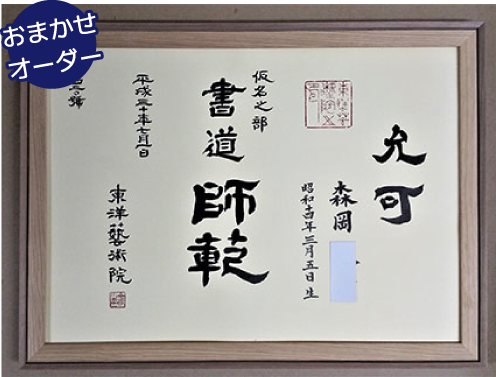 おまかせ
オーダー
允可
森岡
昭和古年三月五日生
仮名之部
書道
師範
平成三十年七月一日
東洋藝術院